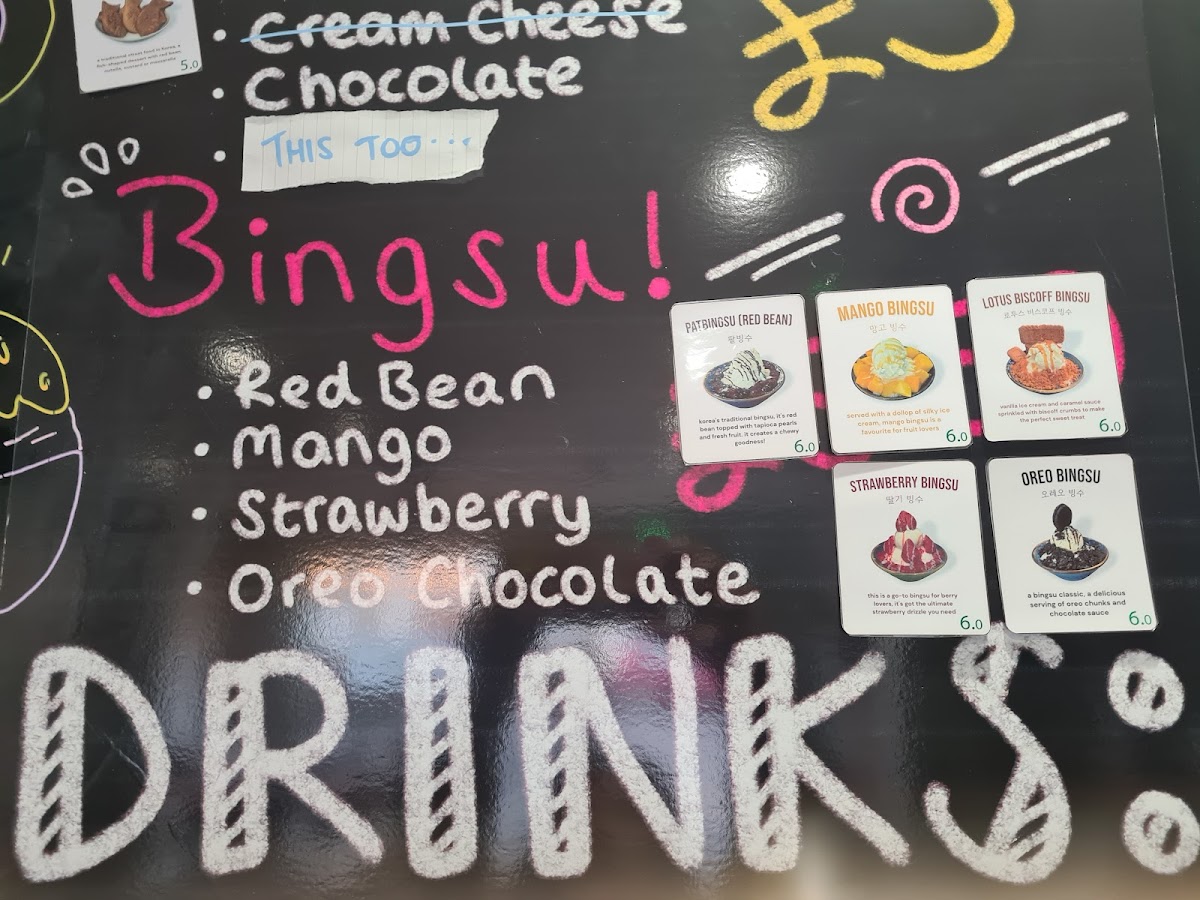 a traditional street food in korea, a
fish-shaped dessert with red bean,
nutella, custard or mozzarella
5.0
• Cream Cheese
• Chocolate
• THIS TOO...
Bingsu!
• Red Bean
• Mango
• Strawberry
• Oreo Chocolate
PATBINGSU (RED BEAN)
팥빙수
korea's traditional bingsu, it's red
bean topped with tapioca pearls
and fresh fruit. it creates a chewy
goodness!
6.0
MANGO BINGSU
망고 빙수
served with a dollop of silky ice
cream, mango bingsu is a
favourite for fruit lovers
6.0
LOTUS BISCOFF BINGSU
로투스 비스코프 빙수
vanilla ice cream and caramel sauce
sprinkled with biscoff crumbs to make
the perfect sweet treat
6.0
STRAWBERRY BINGSU
딸기 빙수
this is a go-to bingsu for berry
lovers, it's got the ultimate
strawberry drizzle you need
6.0
OREO BINGSU
오레오 빙수
a bingsu classic, a delicious
serving of oreo chunks and
chocolate sauce
6.0
DRINKS: